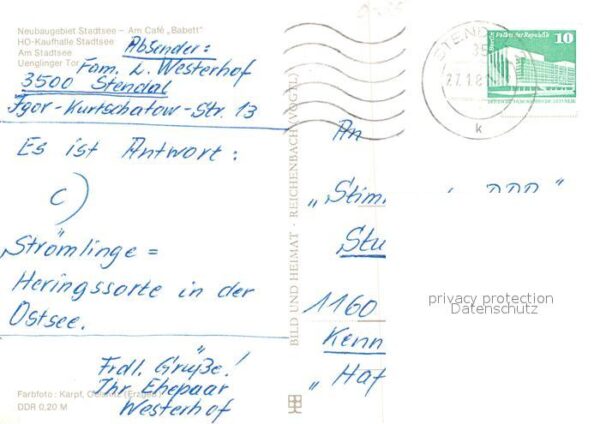 Neubaugebiet Stadtsee – Am Café „Babett"
HO-Kaufhalle Stadtsee
Am Stadtsee
Uenglinger Tor
Absender:
Fam. L. Westerhof
3500 Stendal
Igor-Kurtschatow-Str. 13
Es ist Antwort:
C)
„Strömlinge =
Heringssorte in der
Ostsee.
Frdl. Grüße!
Ihr Ehepaar
Westerhof
Farbfoto: Karpf, Oelsnitz (Erzgeb.)
DDR 0,20 M
BILD UND HEIMAT · REICHENBACH (VOGTL)
STEND
35
27.1.8
k
Berlin Palast der Republik 10
An
„Stim
Stu
1160
Kenn
„Haf
privacy protection
Datenschutz